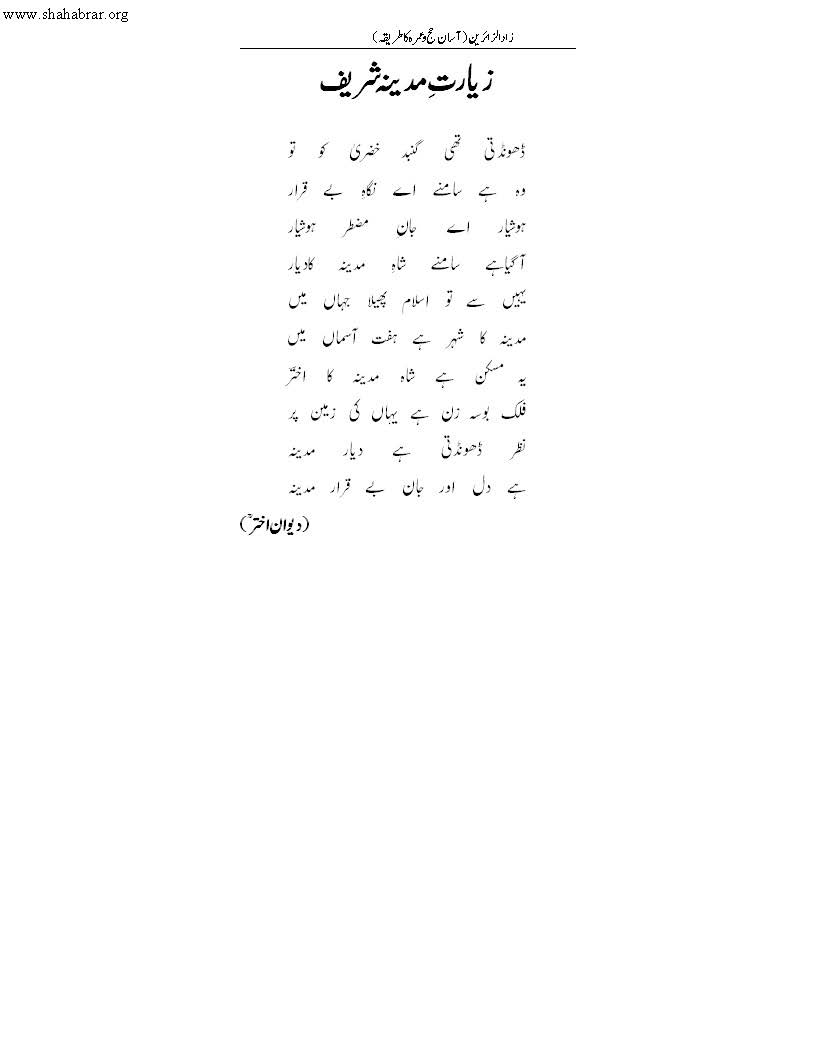 www.shahabrar.org
زاد الزائرین (آسان حج وعمرہ کا طریقہ)
زیارتِ مدینہ شریف
ڈھونڈتی تھی گنبد خضریٰ کو تو
وہ ہے سامنے اے نگاہِ بے قرار
ہوشیار اے جان مضطر ہوشیار
آ گیا ہے سامنے شاہِ مدینہ کا دیار
یہیں سے تو اسلام پھیلا جہاں میں
مدینہ کا شہر ہے ہفت آسماں میں
یہ مسکن ہے شاہ مدینہ کا اخترؔ
فلک بوسہ زن ہے یہاں کی زمین پر
نظر ڈھونڈتی ہے دیار مدینہ
ہے دل اور جان بے قرار مدینہ
(دیوان اخترؒ)